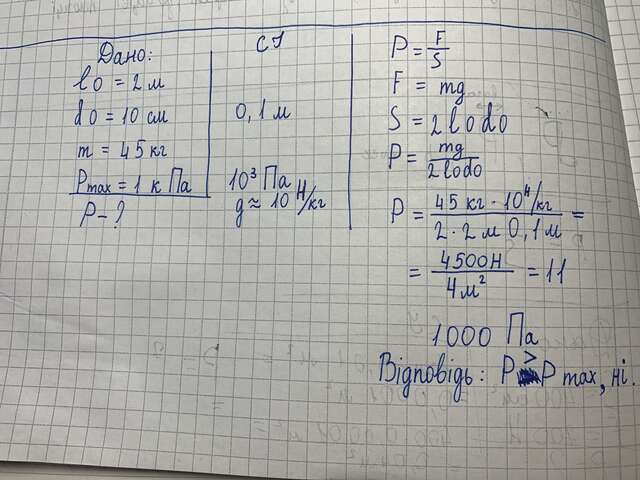 Дано:
l0 = 2 м
d0 = 10 см
m = 45 кг
Pmax = 1 к Па
P - ?
СІ
0,1 м
10³ Па
g ≈ 10 Н/кг
P = F/S
F = mg
S = 2 l0 d0
P = mg/2l0d0
P = 45 кг · 10 Н/кг / 2 · 2 м 0,1 м =
= 4500Н / 4м² = 11
1000 Па
Відповідь: P > P max, ні.